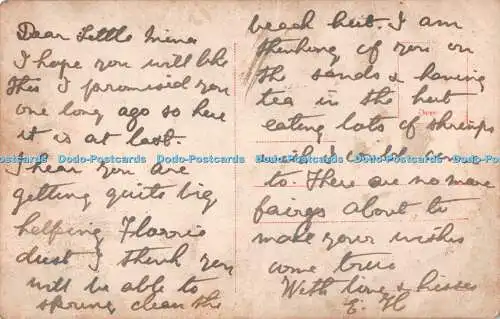 Dear Little Mina
I hope you will like
this I promised you
one long ago so here
it is at last.
I hear you are
getting quite big
helping Florrie
dust I think you
will be able to
spring clean the
beach hut. I am
thinking of you on
the sands & having
tea in the hut
eating lots of shrimps
to. There are no more
fairys about to
make your wishes
come true
With love & kisses
E. H
Dodo-Postcards Dodo-Postcards Dodo-Postcards Dodo-Postcards Dodo-Postcards